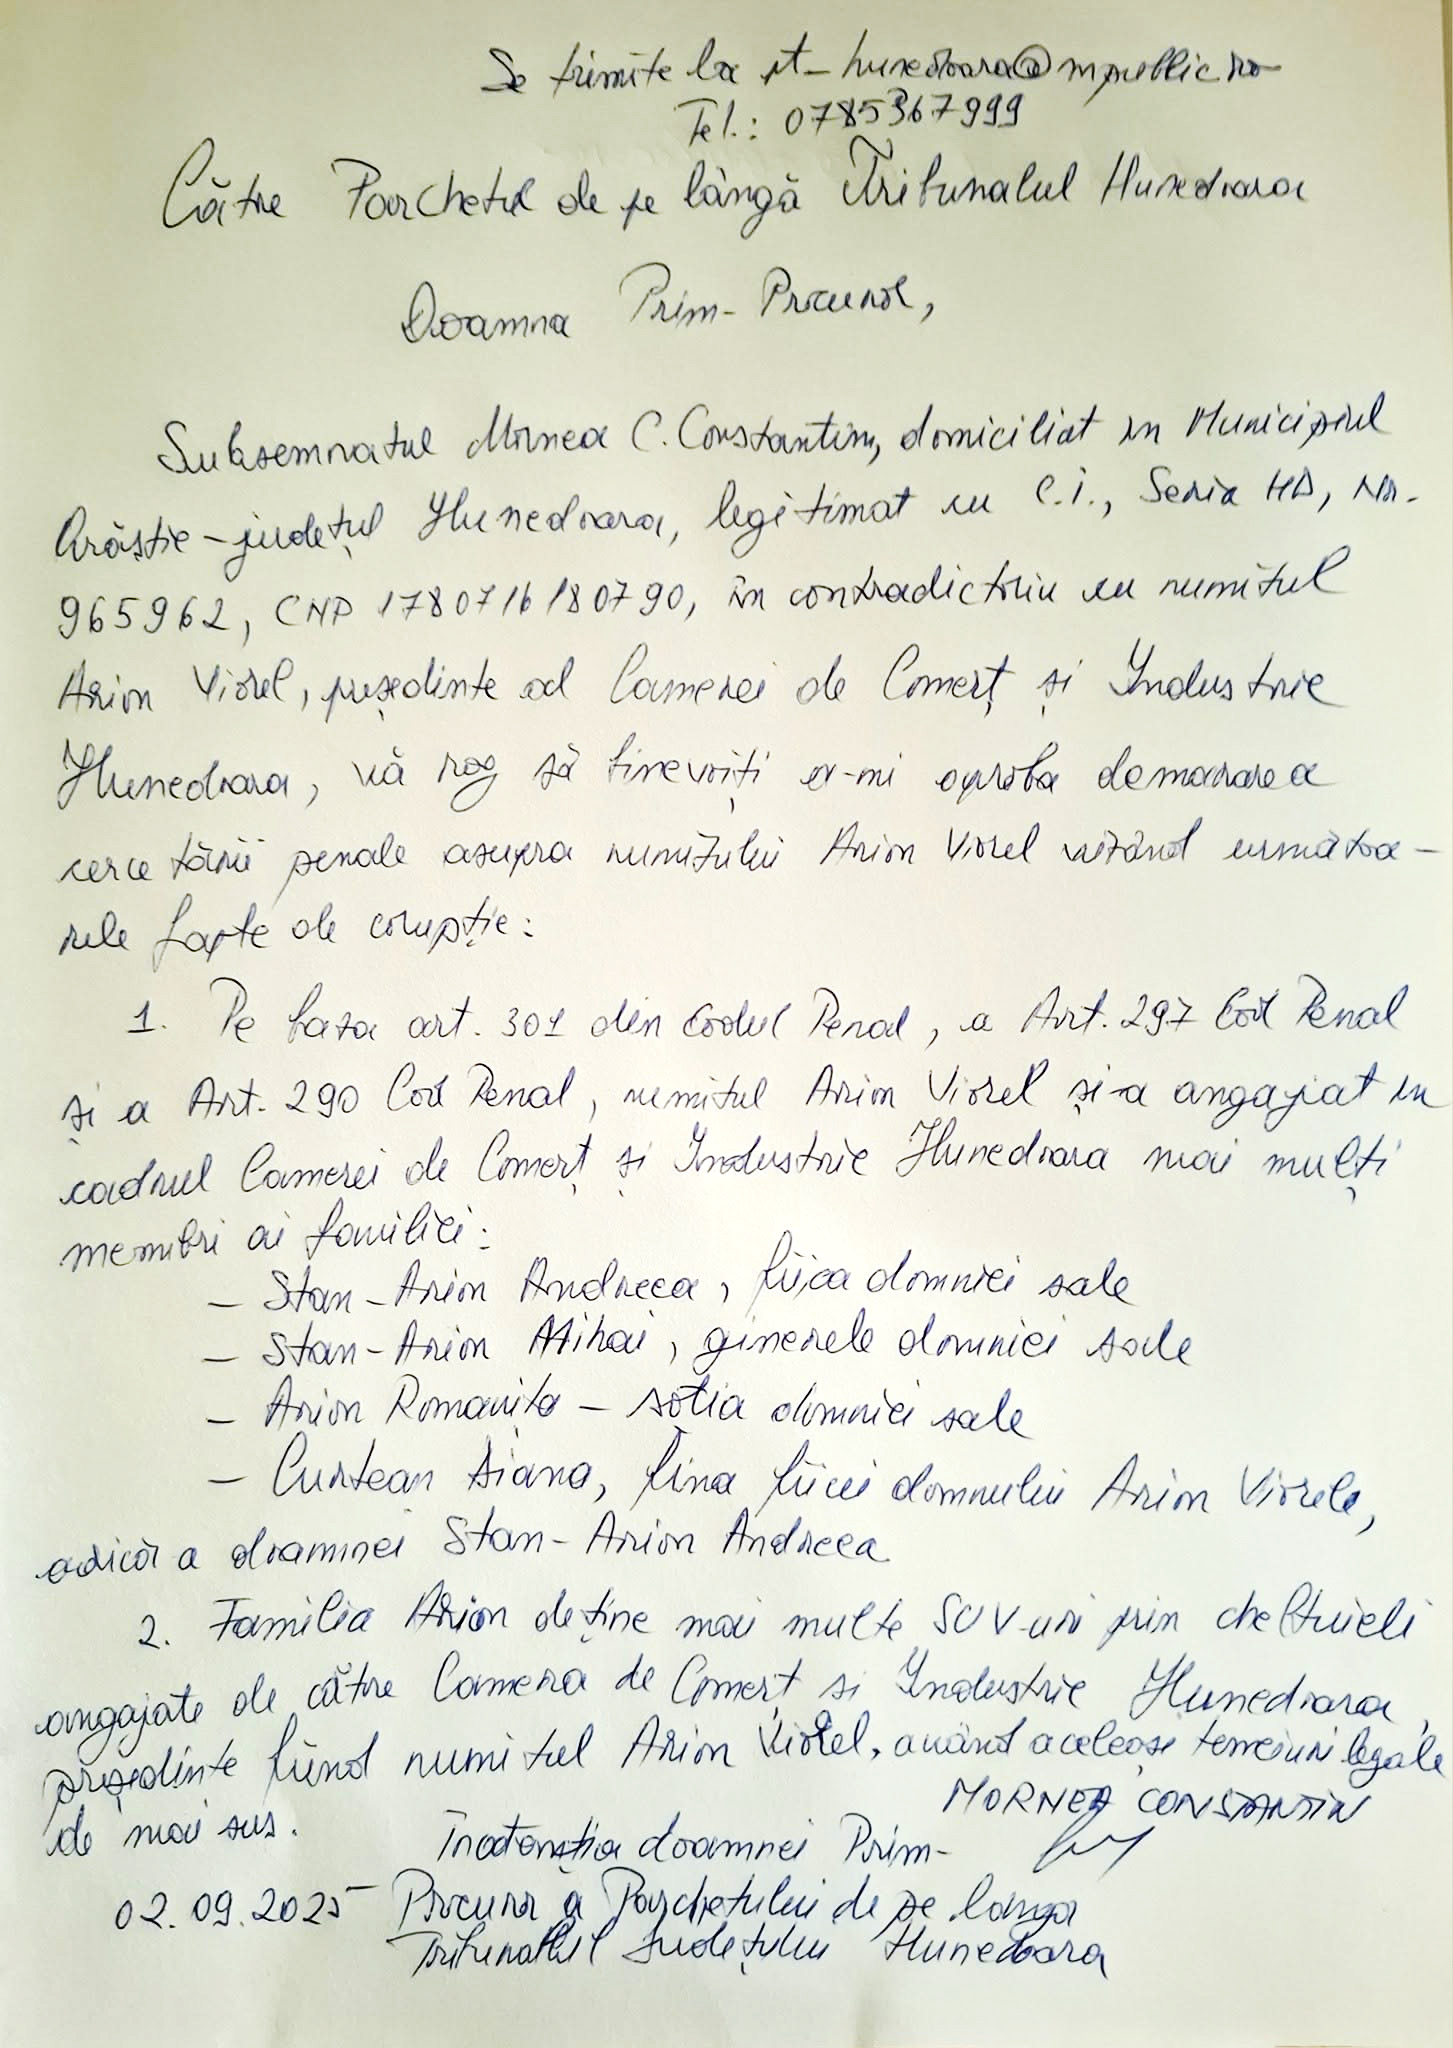 Se trimite la pt-hunedoara@mpublic.ro
Tel.: 0785367999
Către Parchetul de pe lângă Tribunalul Hunedoara
Doamna Prim-Procuror,
Subsemnatul Mornea C. Constantin, domiciliat în Municipiul
Orăștie - județul Hunedoara, legitimat cu C.I., Seria HD, Nr.
965962, CNP 1780716180790, în contradictoriu cu numitul
Arion Viorel, președinte al Camerei de Comerț și Industrie
Hunedoara, vă rog să binevoiți a-mi aproba demararea
cercetării penale asupra numitului Arion Viorel vizând următoa-
rele fapte de corupție:
1. Pe baza art. 301 din Codul Penal, a Art. 297 Cod Penal
și a Art. 290 Cod Penal, numitul Arion Viorel și-a angajat în
cadrul Camerei de Comerț și Industrie Hunedoara mai mulți
membri ai familiei:
- Stan-Arion Andreea, fiica domniei sale
- Stan-Arion Mihai, ginerele domniei sale
- Arion Romanița - soția domniei sale
- Curtean Diana, fina fiicei domnului Arion Viorele,
adică a doamnei Stan-Arion Andreea
2. Familia Arion deține mai multe SUV-uri prin cheltuieli
angajate de către Camera de Comerț si Industrie Hunedoara,
președinte fiind numitul Arion Viorel, având aceleași temeiuri legale
de mai sus.
MORNEA CONSTANTIN
În atenția doamnei Prim-
02.09.2025
Procuror a Parchetului de pe langa
Tribunalul Județului Hunedoara